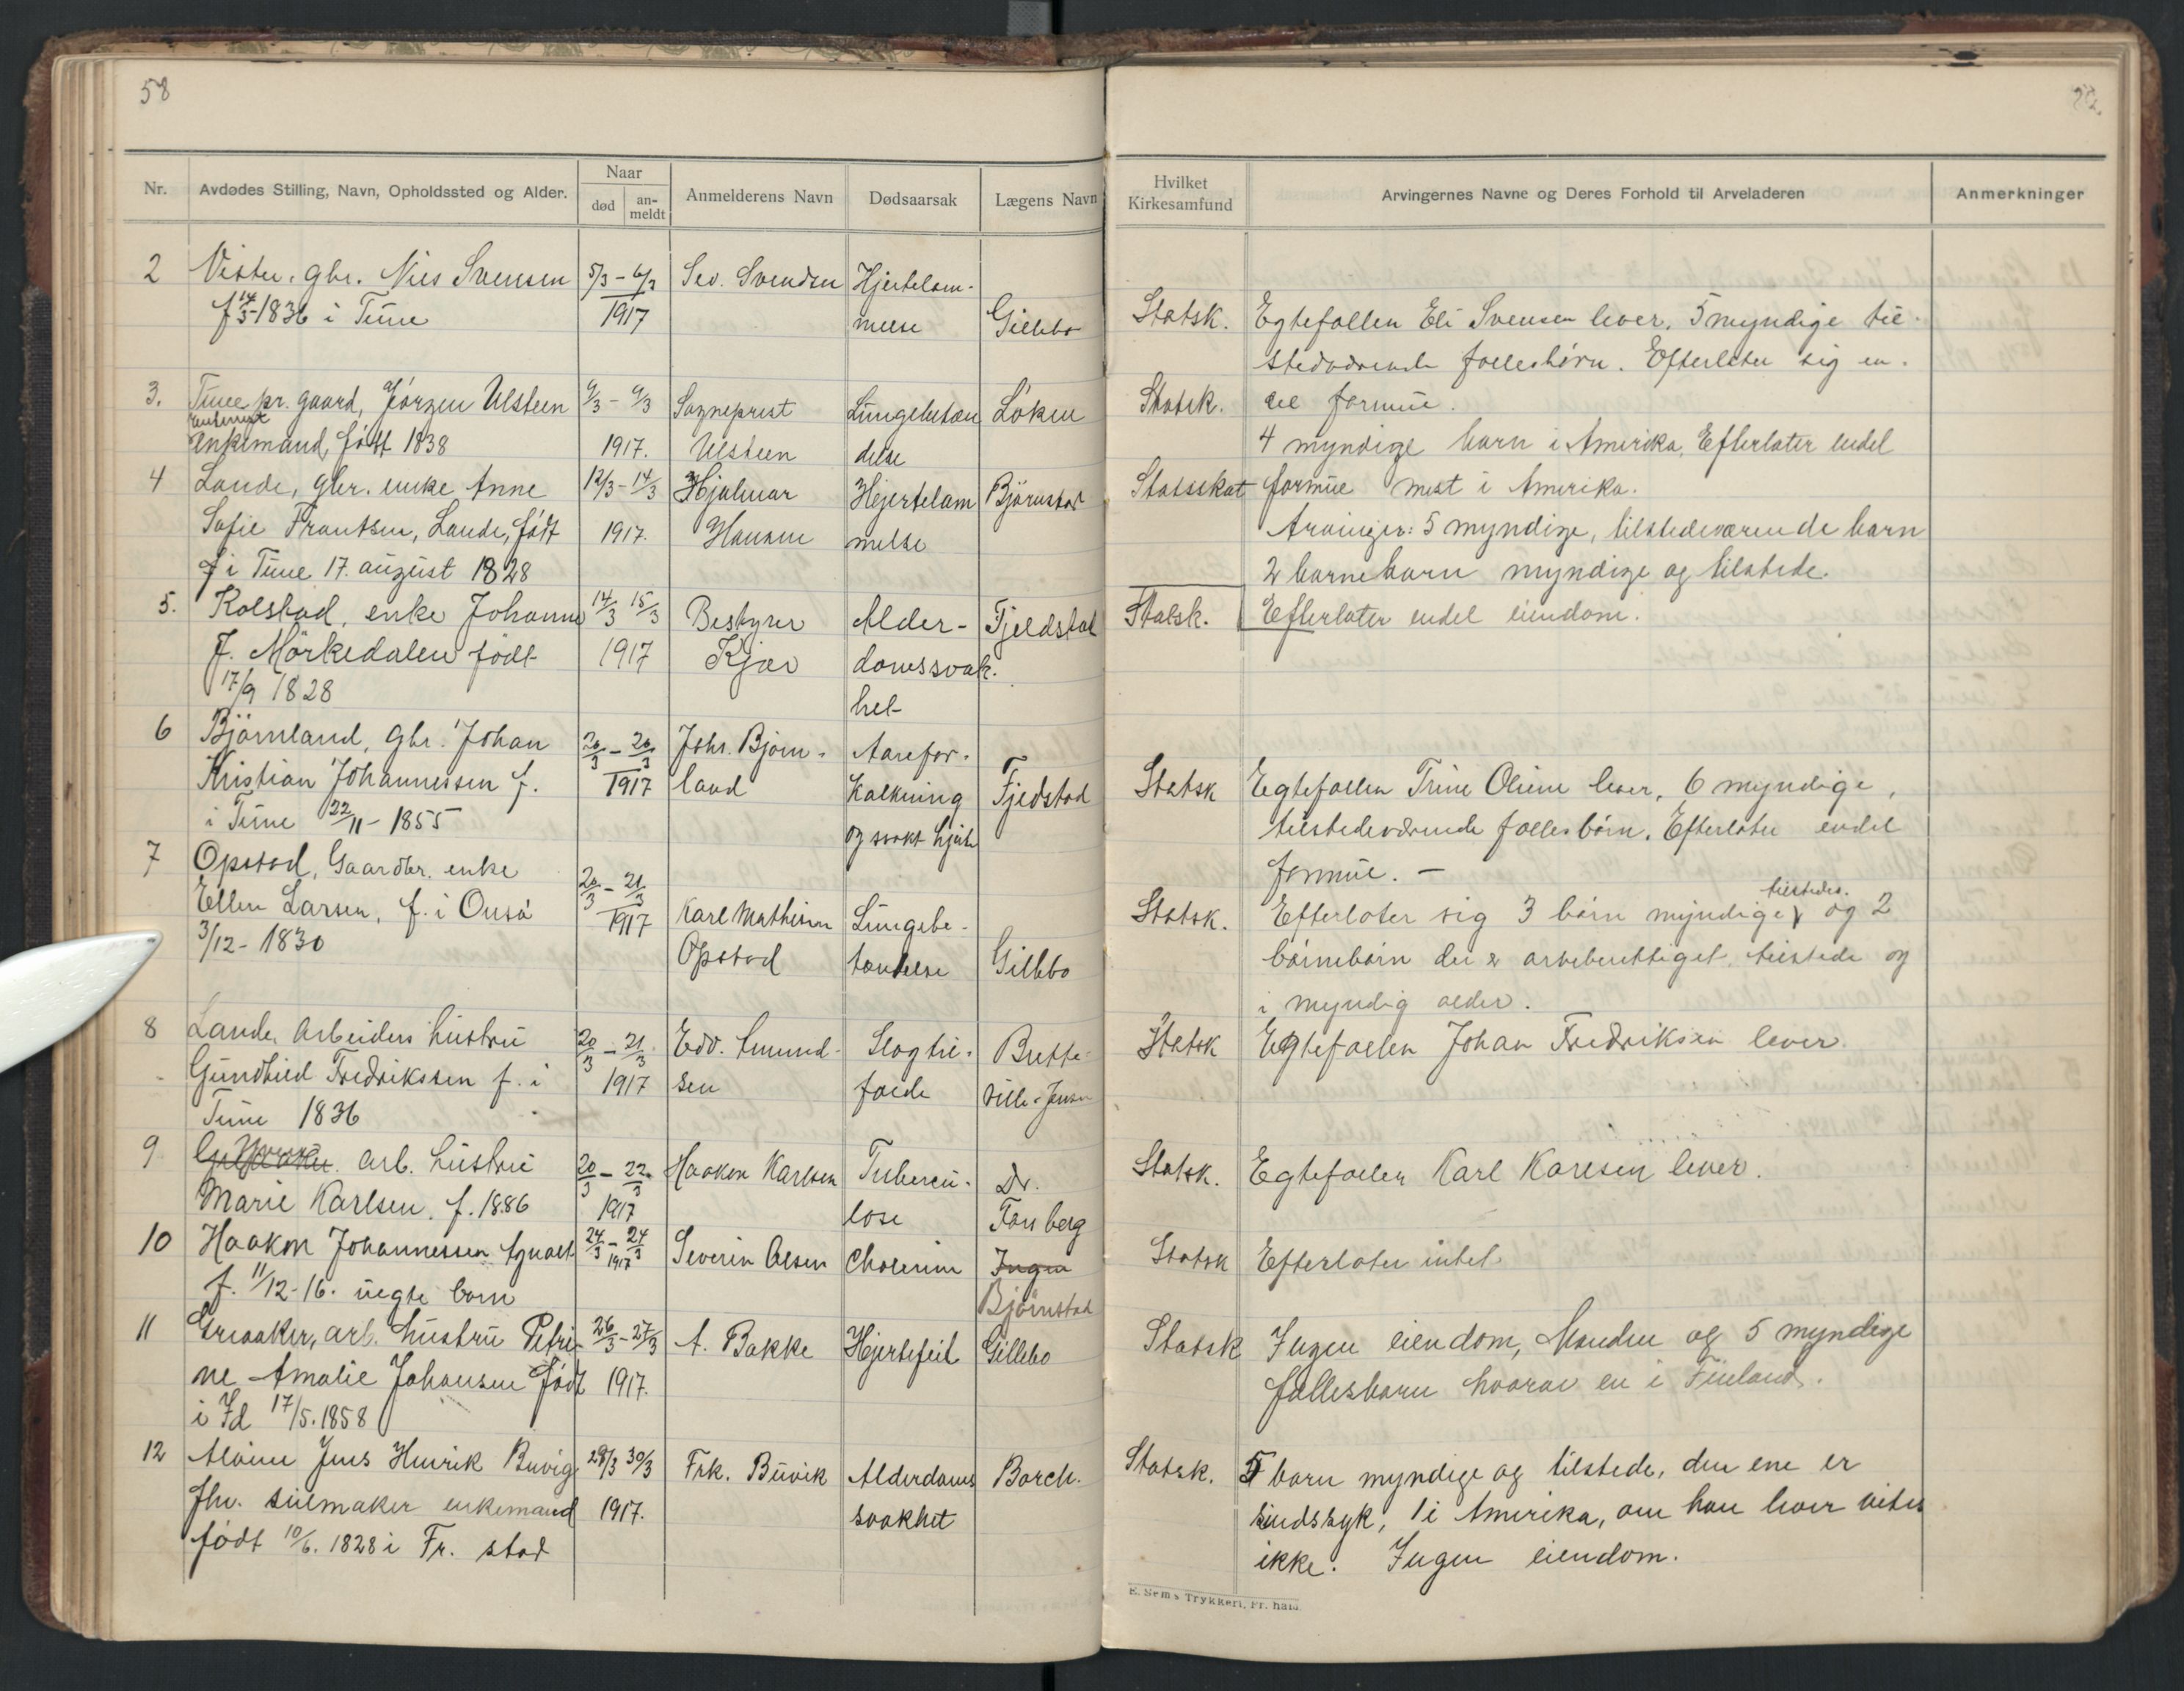 58
Nr.
Avdødes Stilling, Navn, Opholdssted og Alder.
Naar
død
an-
meldt
Anmelderens Navn
Dødsaarsak
Lægens Navn
2
Vister. gbr. Nils Svensen
f 14/5-1836 i Tune
5/3 - 6/3
1917
Sev. Svendsen
Hjertelam-
melse
Gillebo
3.
Tune pr. gaard, Jörgen Ulsteen
enkemand, födt 1838
9/3 - 9/3
1917.
Sogneprest
Ulsteen
Lungebetæn
delse
Löken
4
Lande, gbr. enke Anne
Sofie Frantsen, Lande, födt
f i Tune 17. august 1828
12/3 - 14/3
1917.
Hjalmar
Hansen
Hjertelam
melse
Björnstad
5.
Kolstad, enke Johanne
J. Mörkedalen födt
17/9 1828
14/3 15/3
1917
Bestyrer
Kjær
Alder-
domssvak.
het
Fjeldstad
6
Björnland, gbr. Johan
Kristian Johannessen f.
i Tune 22/11 - 1855
20/3 - 20/3
1917
Johs. Bjørn-
land
Aarefor-
kalkning
og svakt hjerte
Fjedstad
7
Opstad, Gaardbr. enke
Ellen Larsen, f. i Onsö
3/12 - 1830
20/3 - 21/3
1917
Karl Mathisen
Opstad
Lungebe-
tændelse
Gillebo
8
Lande, Arbeiders hustru
Gundhild Fredriksen f. i
Tune 1836
20/3 - 21/3
1917
Edv. Amund-
sen
Slagtil-
fælde
Brette-
ville-Jensen
9
arb. hustru
Marie Karlsen. f. 1886
20/3 - 22/3
1917
Haakon Karlsen
Tubercu-
lose
Dr.
Forsberg
10
Haakon Johannessen Agnalt
f. 11/12-16. uegte barn
24/3 - 24/3
1917
Severin Olsen
Cholerine
Ingen
Björnstad
11
Greaaker, arb. hustru Petri-
ne Amalie Johansen födt
i Id 17/5. 1858
26/3 - 27/3
1917.
A. Bakke
Hjertefeil
Gillebo
12
Alvim Jens Henrik Buvig
fhv. seilmaker enkemand
födt 10/6. 1828 i Fr. stad
29/3 30/3
1917.
Frk. Buvik
Alderdoms
svakhet
Borch.
Hvilket
Kirkesamfund
Arvingernes Navne og Deres Forhold til Arveladeren
Anmerkninger
Statsk.
Egtefællen Eli Svensen lever. 5 myndige til-
stedværende fællesbörn. Efterlater sig en-
del formue.
Statsk.
4 myndige barn i Amerika, Efterlater endel
formue mest i Amerika.
Arvinger: 5 myndige, tilstedeværende barn
2 barnebarn myndige og tilstede.
Efterlater endel eiendom.
Statsk.
Statsk
Egtefællen Trine Oline lever, 6 myndige,
tilstedeværende fællesbörn. Efterlater endel
formue. -
Statsk.
Efterlater sig 3 börn myndige tilstedes. og 2
börnebörn der er arveberettiget, tilstede og
i myndig alder.
Statsk
Egtefællen Johan Fredriksen lever.
Statsk.
Egtefællen Karl Karlsen lever.
Statsk
Efterlater intet
Statsk
Ingen eiendom, Manden og 5 myndige
fællesbarn hvorav en i Finland.
Statsk.
5 barn myndige og tilstede, den ene er
sindssyk, 1 i Amerika, om han lever vites
ikke. Ingen eiendom.
E. Sem's Trykkeri, Fr.hald.